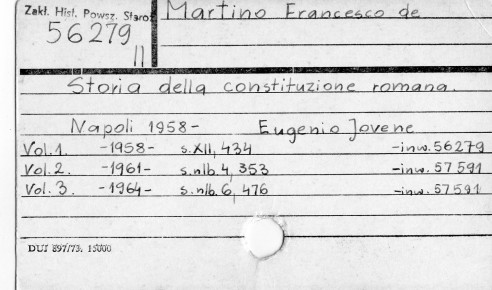 Zakł. Hist. Powsz. Staroż
Martino Francesco de
56279
II
Storia della constituzione romana.
Napoli 1958- Eugenio Jovene
Vol. 1. -1958- s. XII, 434 -inw. 56279
Vol. 2. -1961- s. nlb. 4, 353 -inw. 57591
Vol. 3. -1964- s. nlb. 6, 476 -inw. 57591
DUJ 897/73. 15000